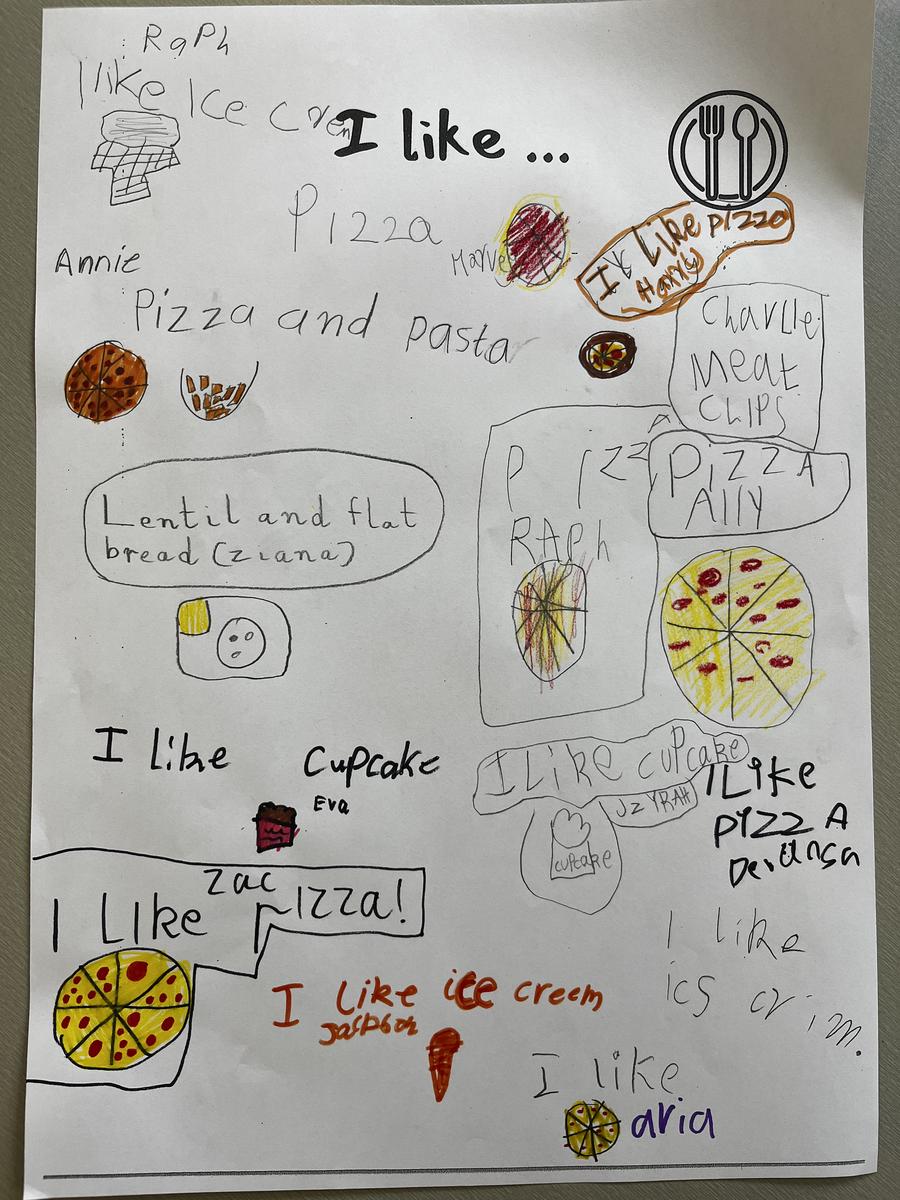 RaPh
I like Ice cren
I like ...
Pizza
Marvel
I Like Pizza
Harry
Annie
Pizza and pasta
Charlie
Meat
CLIPS
PizzA
RAPh
PizzA
Ally
Lentil and flat
bread (ziana)
I like cupcake
Eva
I Like cupcake
JZYRAH
cupcake
I Like
PIzz A
zac
I LIke PIzza!
I like ice creem
I like
ics crim.
I like
aria